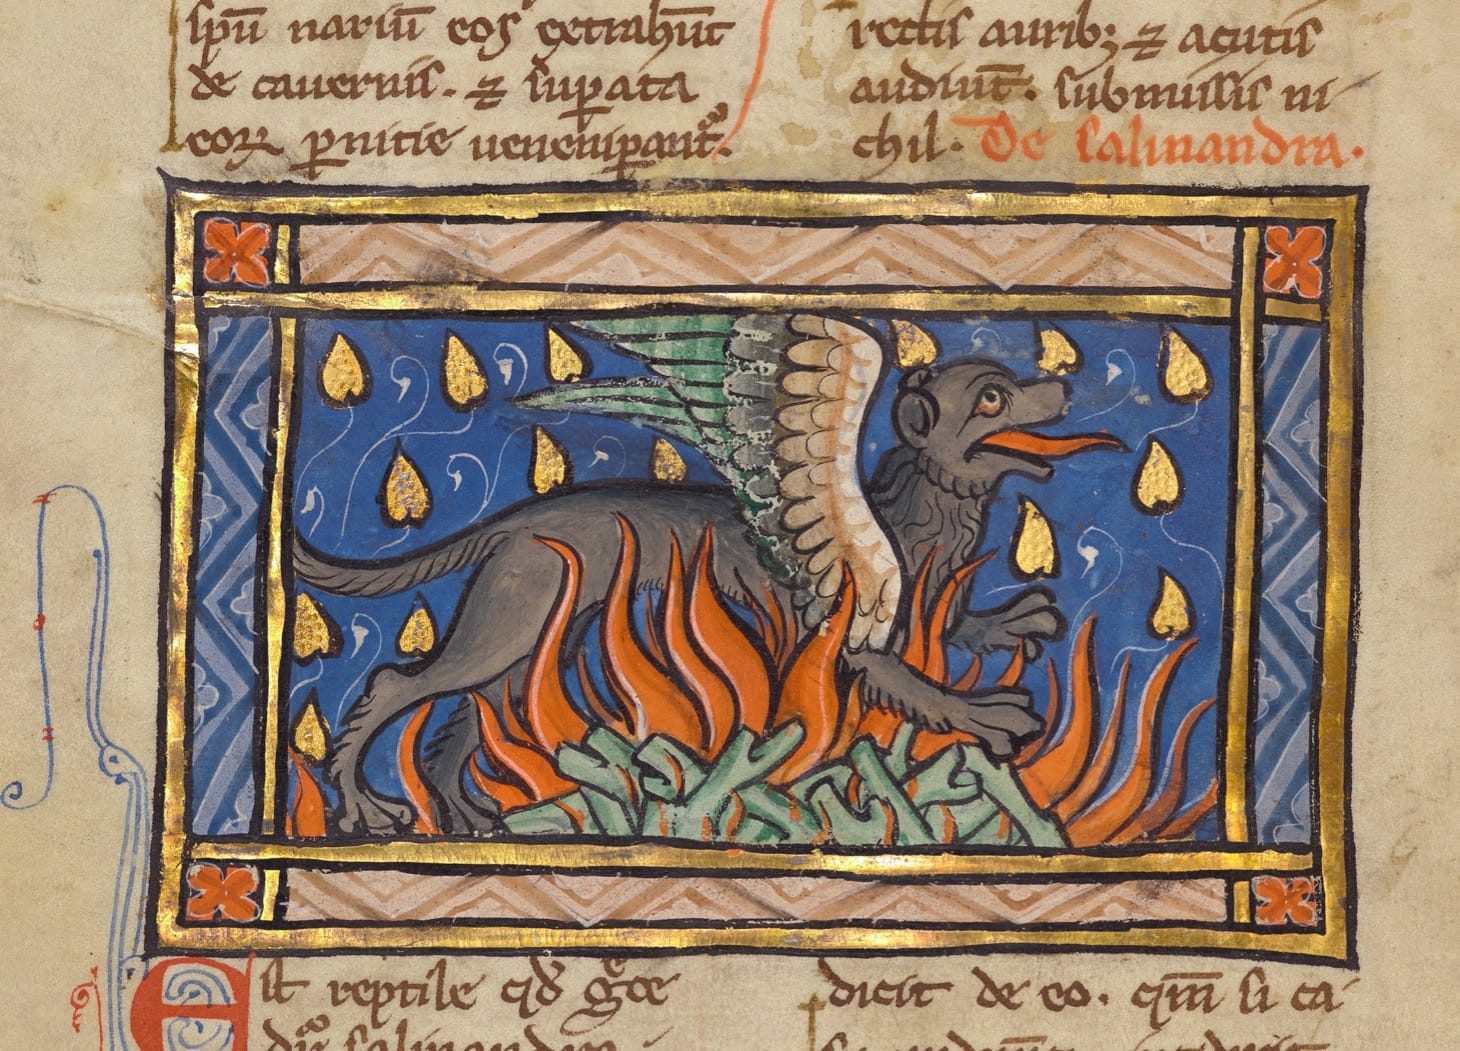 sp̄u nariū eos ext̾hūt
de cavernis. ⁊ sup̱ata
eoꝝ ꝑnitie veneniꝑant᷑.
rectis aurib; ⁊ acutis
audiūt. submissis ni
chil. De salmandra.
Est reptile qd̾ grece
dr̃ salmandra.
dicit de eo. qm̄ si ca